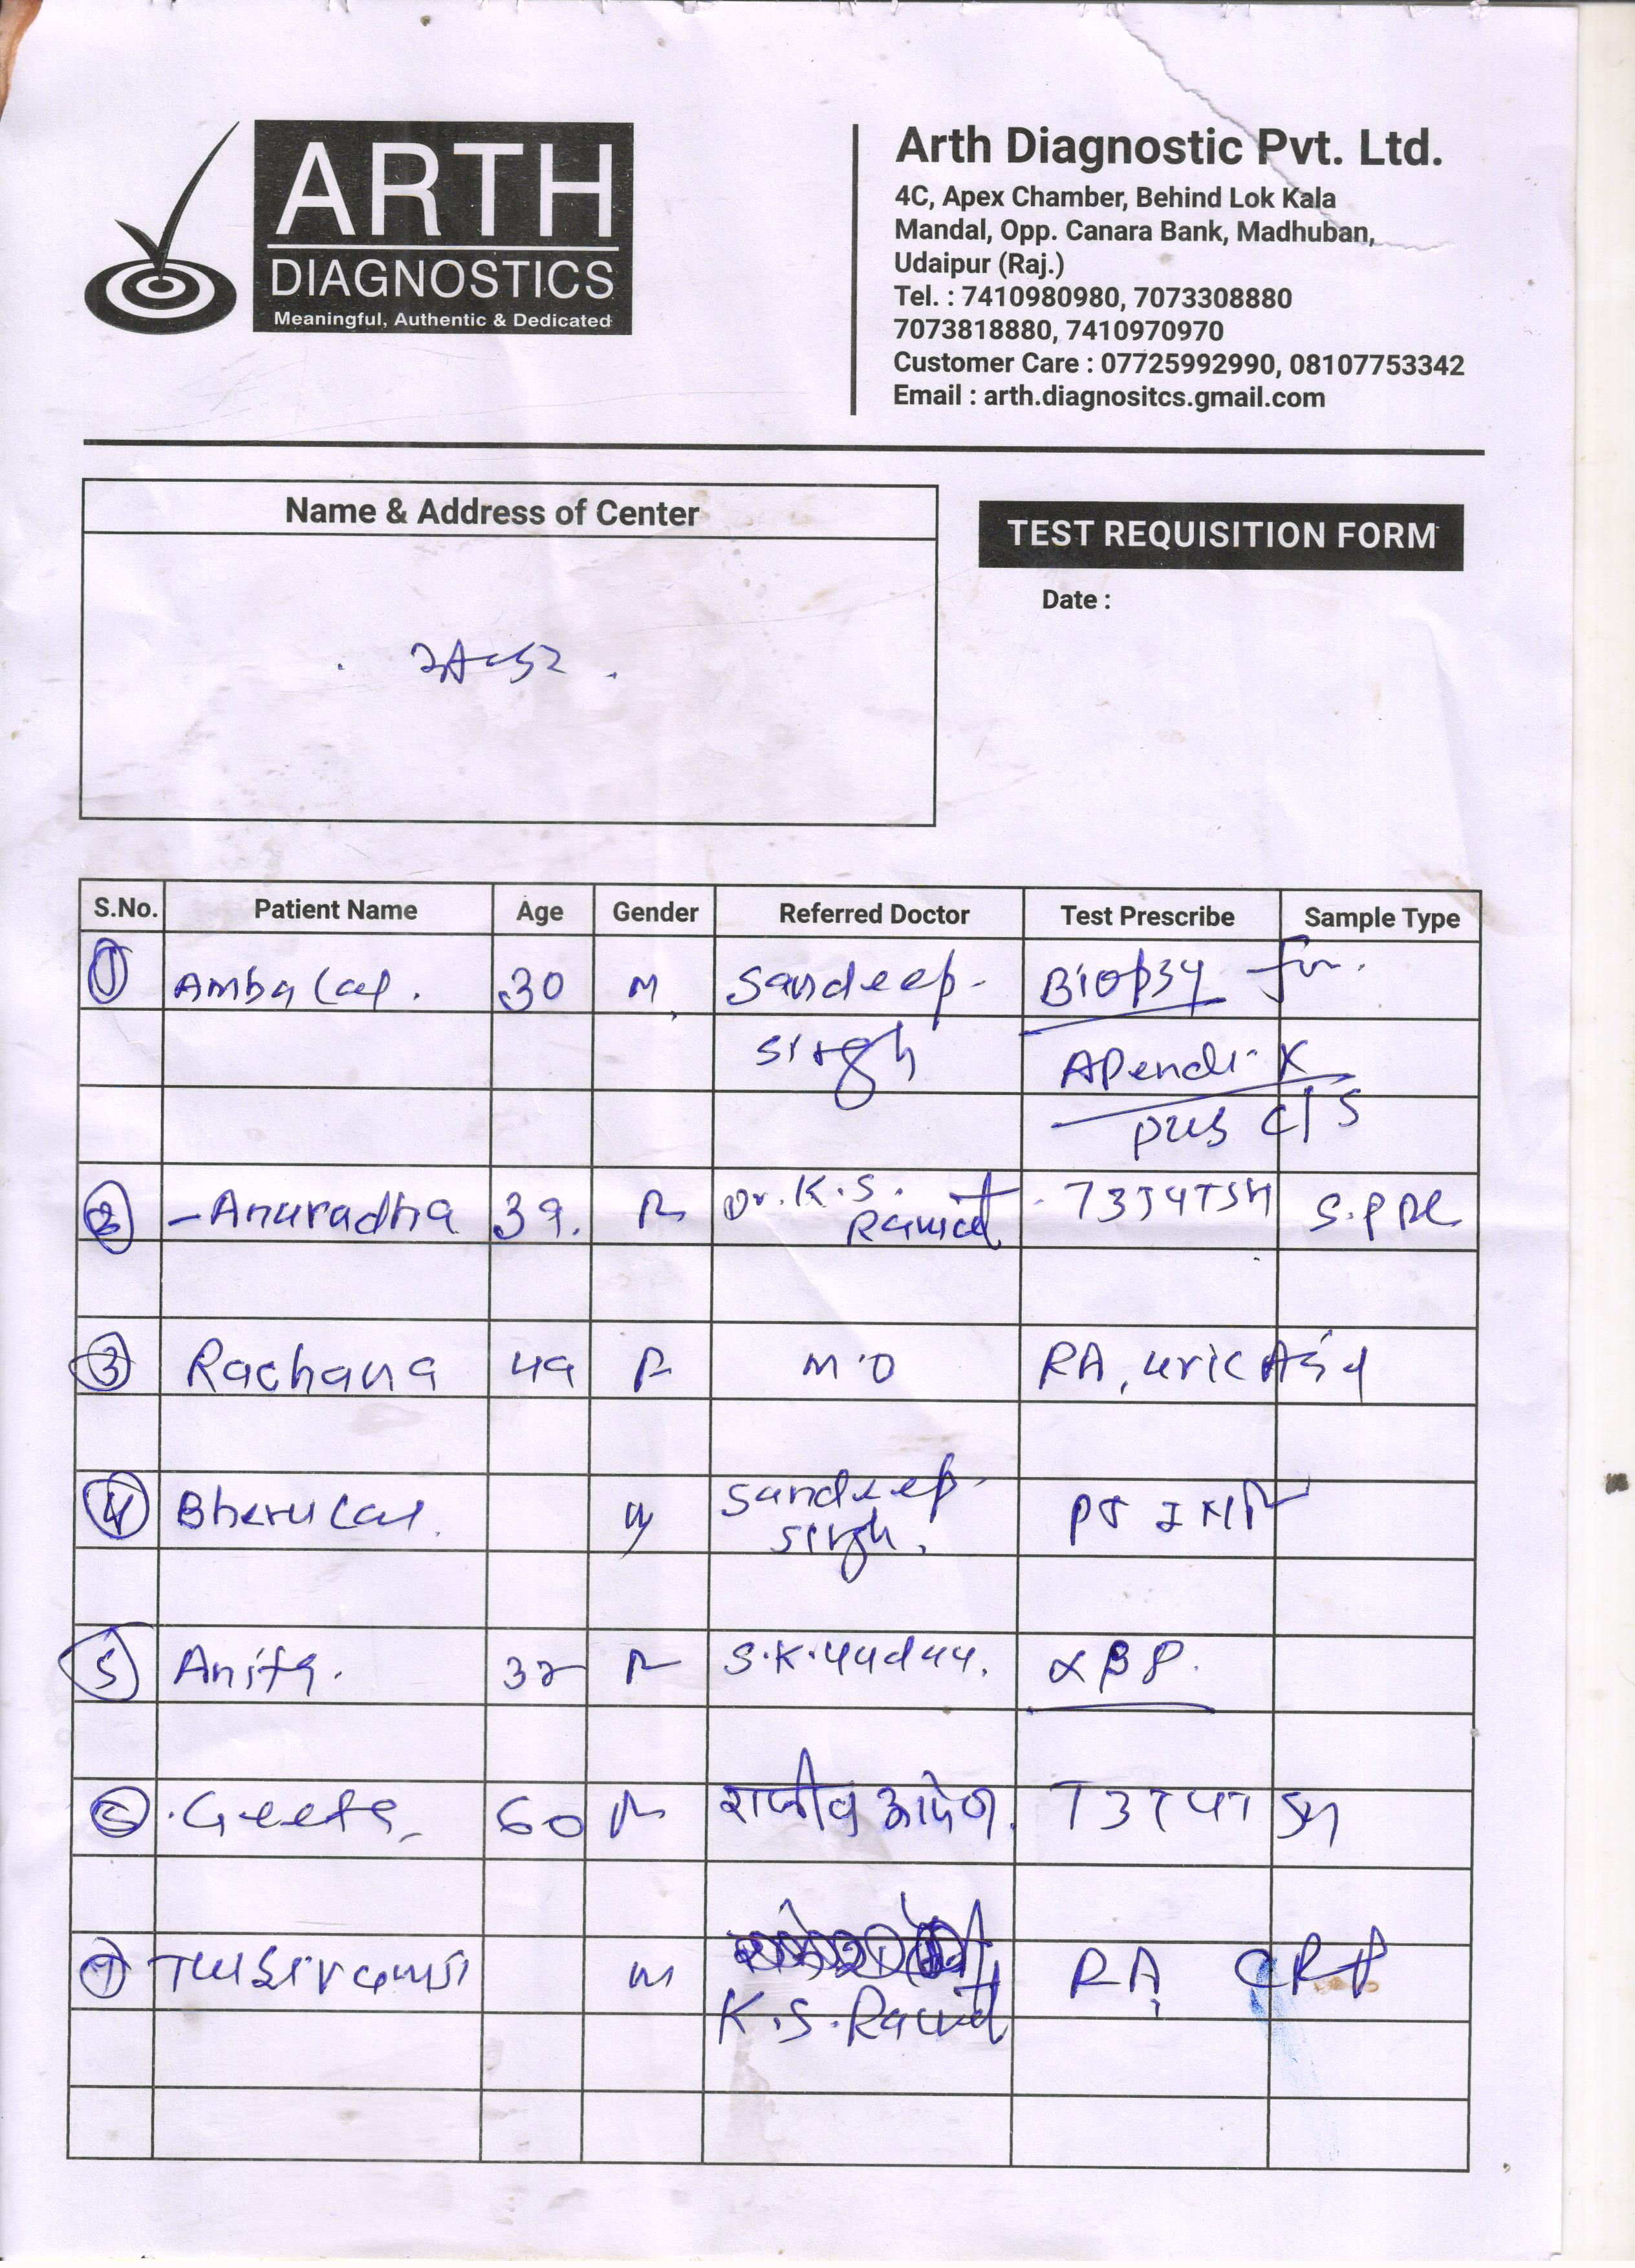 ARTH
DIAGNOSTICS
Meaningful, Authentic & Dedicated
Arth Diagnostic Pvt. Ltd.
4C, Apex Chamber, Behind Lok Kala
Mandal, Opp. Canara Bank, Madhuban,
Udaipur (Raj.)
Tel. : 7410980980, 7073308880
7073818880, 7410970970
Customer Care : 07725992990, 08107753342
Email : arth.diagnositcs.gmail.com
Name & Address of Center
TEST REQUISITION FORM
Date :
S.No. Patient Name Age Gender Referred Doctor Test Prescribe Sample Type
1 Ambalal. 30 M Sandeep Biopsy for.
singh Apendix
pus c/s
2 - Anuradha 39. F Dr. K.S. Rawat T3T4TSH
3 Rachana 49 F M.O RA, uric
4 Bherulal. M Sandeep PT INR
singh.
5 Anita. 32 F S.K.Yadav.
6 Geeta 60 F राजीव T3T4TSH
7 Tulsiram M
K.S.Rawat RA, CRP